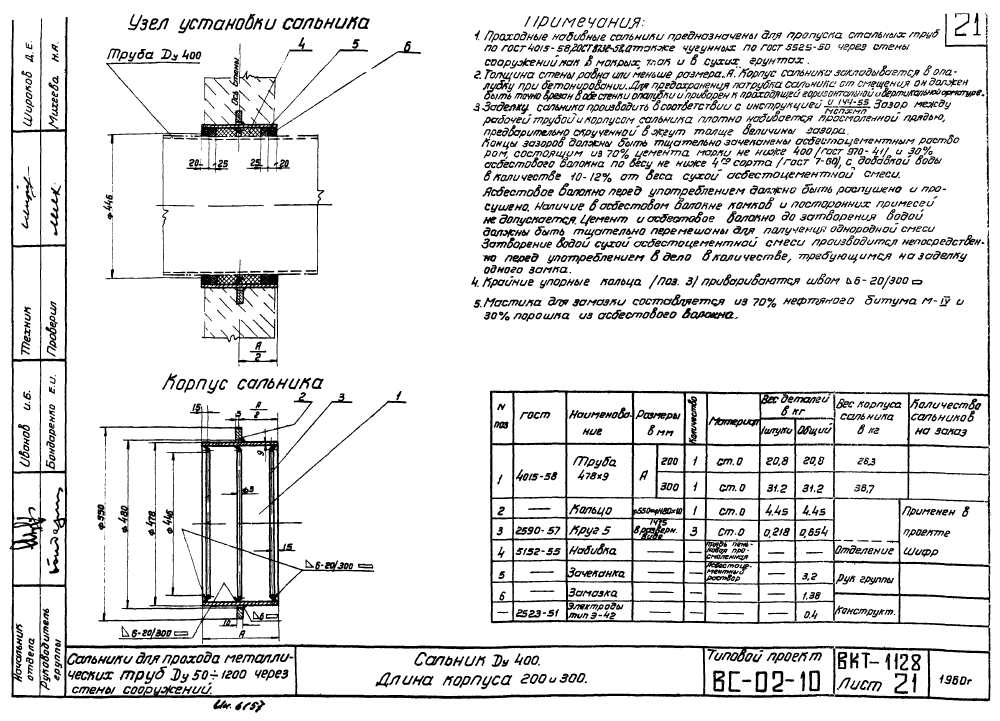 Узел установки сальника
Труба Dу 400
4
5
6
Ось стены
20
25
25
20
ф446
А
2
Корпус сальника
15
5
А
2
2
3
1
9
8
ф550
ф480
ф478
ф446
15
△6-20/300
10
△6
△6-20/300
А
Примечания:
21
1. Проходные набивные сальники предназначены для пропуска стальных труб
по гост 4015-58, гост 8732-58, а также чугунных по гост 5525-50 через стены
сооружений как в мокрых, так и в сухих грунтах.
2. Толщина стены равна или меньше размера „А". Корпус сальника закладывается в опа-
лубку при бетонировании. Для предохранения патрубка сальника от смещения он должен
быть точно врезан в обе стенки опалубки и приварен к проходящей горизонтальной и вертикальной арматуре.
3. Заделку сальника производить в соответствии с инструкцией И 144-55 / МСПХМП Зазор между
рабочей трубой и корпусом сальника плотно набивается просмоленной прядью,
предварительно скрученной в жгут толще величины зазора.
Концы зазоров должны быть тщательно зачеканены асбестоцементным раство
ром, состоящим из 70% цемента марки не ниже 400 /гост 970-41/, и 30%
асбестового волокна по весу не ниже 4го сорта /гост 7-60/, с добавкой воды
в количестве 10-12% от веса сухой асбестоцементной смеси.
Асбестовое волокно перед употреблением должно быть распушена и про-
сушено. Наличие в асбестовом волокне комков и посторонних примесей
не допускается. Цемент и асбестовое волокно до затворения водой
должны быть тщательно перемешаны для получения однородной смеси
Затворение водой сухой асбестоцементной смеси производится непосредствен-
но перед употреблением в дело в количестве, требующимся на заделку
одного замка.
4. Крайние упорные кольца /поз. 3/ привариваются швом △6-20/300
5. Мастика для замазки составляется из 70% нефтяного битума М-IV и
30% порошка из асбестового волокна.
N поз | гост | Наименование | Размеры в мм | Количество | Материал | Вес деталей в кг | Вес корпуса сальника в кг | Количество сальников на заказ
1 штуки | Общий
1 | 4015-58 | Труба 478×9 | А | 200 | 1 | ст.0 | 20,8 | 20,8 | 26,3
300 | 1 | ст.0 | 31.2 | 31.2 | 36,7
2 | — | Кольцо | ф550×ф480×10 | 1 | ст.0 | 4.45 | 4.45 | Применен в
3 | 2590-57 | Круг 5 | 1475 в разверн. виде | 3 | ст.0 | 0,218 | 0,654 | проекте
4 | 5152-55 | Набивка | — | — | прядь пеньковая просмоленная | — | — | Отделение | Шифр
5 | — | Зачеканка | — | — | Асбестоцементный раствор | — | 3,2 | Рук группы
6 | — | Замазка | — | — | — | — | 1,38
— | 2523-51 | Электроды тип Э-42 | — | — | — | — | 0.4 | Конструкт.
Широков Д.Е.
Михеева Н.Я.
Техник
Проверил
Иванов И.Б.
Бондаренко Е.И.
Начальник отдела
Руководитель группы
Сальники для прохода металли-
ческих труб Dу 50÷1200 через
стены сооружений.
Сальник Dу 400.
Длина корпуса 200 и 300.
Типовой проект
ВС-02-10
ВКТ-1128
Лист 21
1960г
Ин. 6157